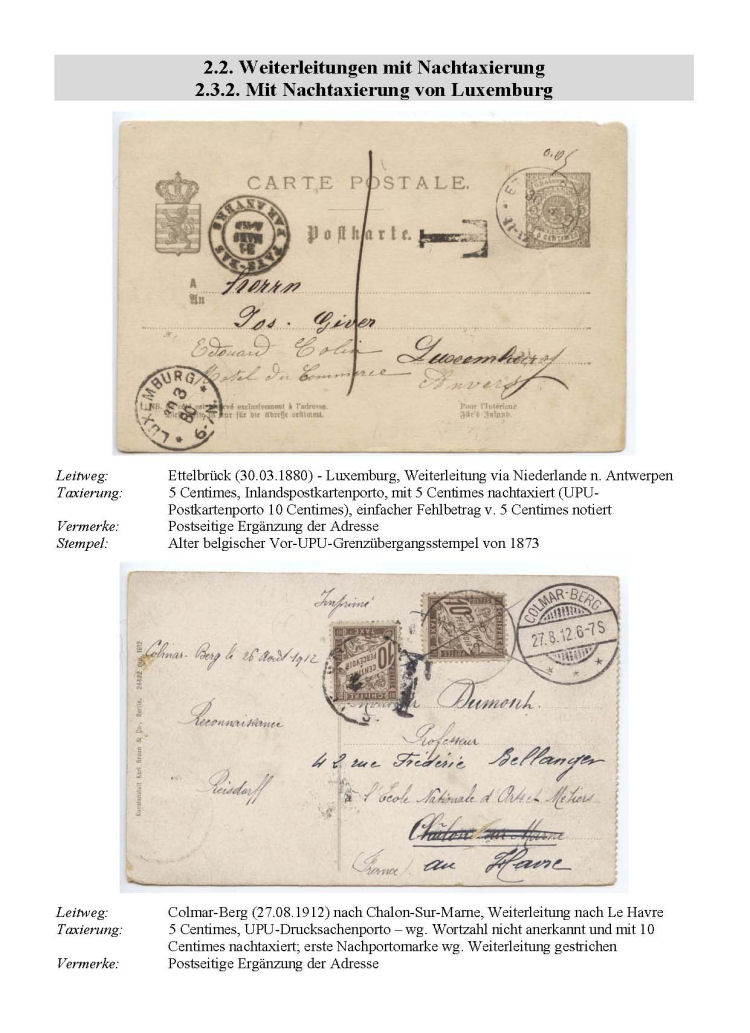 2.2. Weiterleitungen mit Nachtaxierung
2.3.2. Mit Nachtaxierung von Luxemburg
0.05
CARTE POSTALE.
Postkarte.
T
PAYS-BAS
PAR ANVERS
5 CENTIMES
A
An
Herrn
Jos. Giver
Edouard Colin Luxemburg
Hotel du Commerce Anvers
LUXEMBURG
30 3
80
6-7N.
NB. exclusivement à l'adresse.
nur für die Adresse bestimmt.
Pour l'intérieur
Für's Inland.
Leitweg: Ettelbrück (30.03.1880) - Luxemburg, Weiterleitung via Niederlande n. Antwerpen
Taxierung: 5 Centimes, Inlandspostkartenporto, mit 5 Centimes nachtaxiert (UPU-
Postkartenporto 10 Centimes), einfacher Fehlbetrag v. 5 Centimes notiert
Vermerke: Postseitige Ergänzung der Adresse
Stempel: Alter belgischer Vor-UPU-Grenzübergangsstempel von 1873
Imprimé
COLMAR-BERG
27.8.12.6-7S
10
CENTIMES
A PERCEVOIR
CHIFFRE TAXE
10
Colmar-Berg le 26 Août 1912
Reconnaissance
Reisdorff
Monsieur Dumouh.
Professeur
42 rue Frédéric Bellanger
à l'École Nationale d'Arts et Métiers
Châlons sur Marne
(France) au Havre
Leitweg: Colmar-Berg (27.08.1912) nach Chalon-Sur-Marne, Weiterleitung nach Le Havre
Taxierung: 5 Centimes, UPU-Drucksachenporto – wg. Wortzahl nicht anerkannt und mit 10
Centimes nachtaxiert; erste Nachportomarke wg. Weiterleitung gestrichen
Vermerke: Postseitige Ergänzung der Adresse